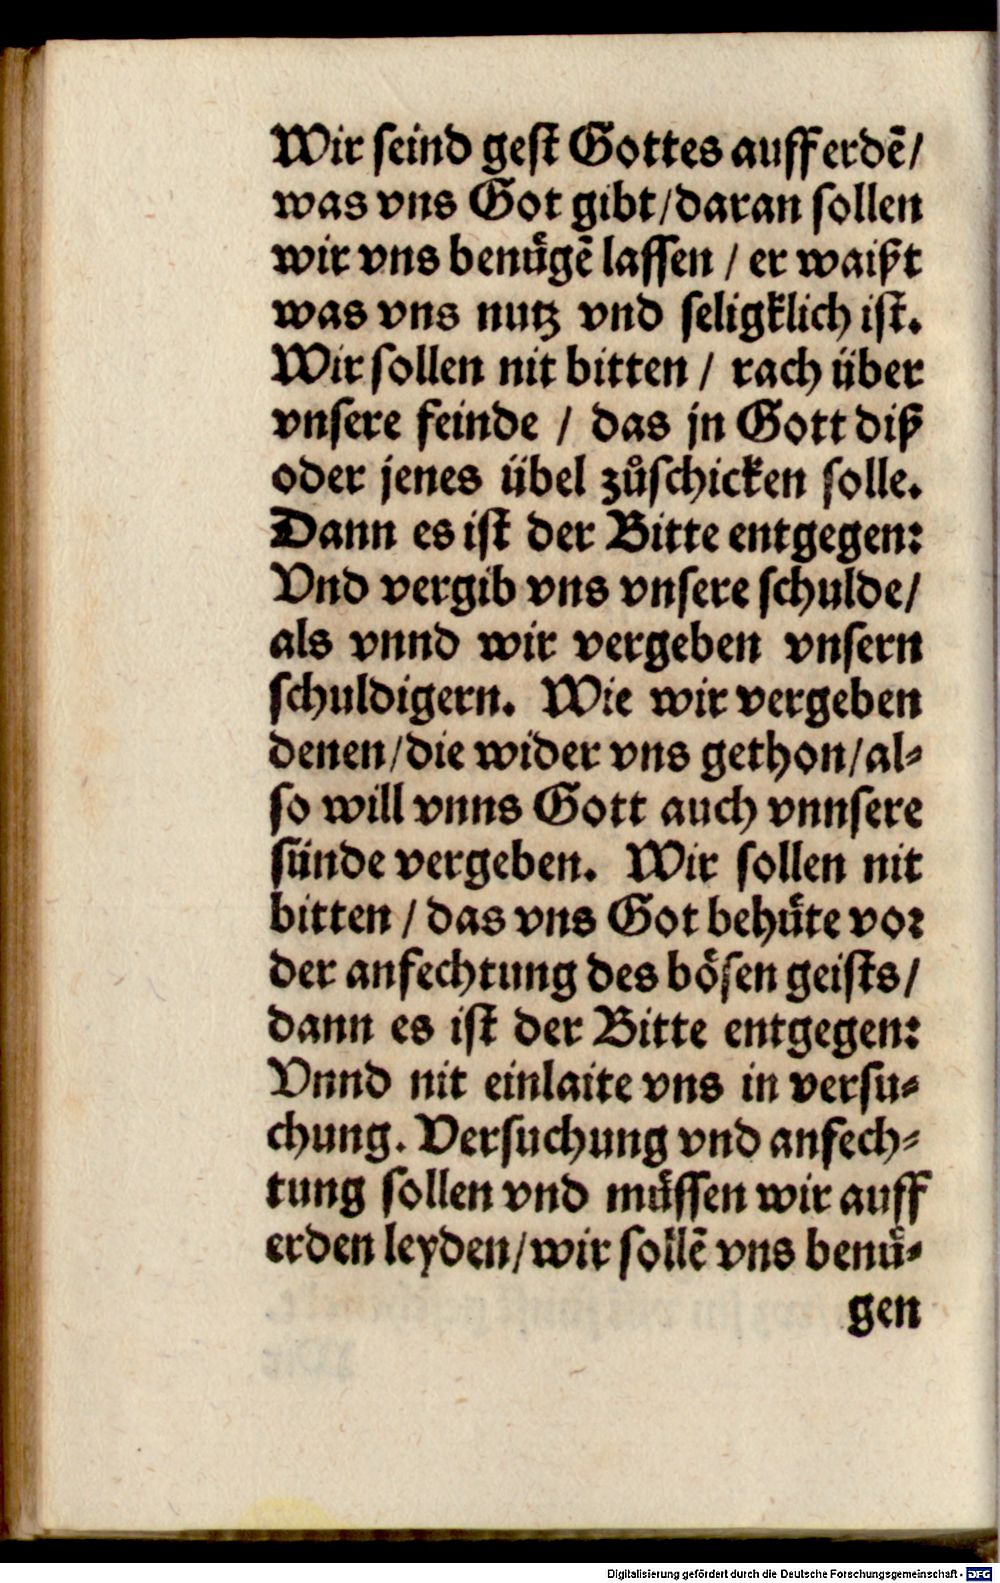 Wir seind gest Gottes auff erdē/
was vns Got gibt/daran sollen
wir vns benuͤgē lassen / er waißt
was vns nutz vnd seligklich ist.
Wir sollen nit bitten / rach über
vnsere feinde / das jn Gott diß
oder jenes übel zuͦschicken solle.
Dann es ist der Bitte entgegen:
Vnd vergib vns vnsere schulde/
als vnnd wir vergeben vnsern
schuldigern. Wie wir vergeben
denen/die wider vns gethon/al⸗
so will vnns Gott auch vnnsere
sünde vergeben. Wir sollen nit
bitten / das vns Got behuͤte vor
der anfechtung des boͤsen geists/
dann es ist der Bitte entgegen:
Vnnd nit einlaite vns in versu⸗
chung. Versuchung vnd anfech⸗
tung sollen vnd muͤssen wir auff
erden leyden/wir sollē vns benuͤ⸗
gen
Digitalisierung gefördert durch die Deutsche Forschungsgemeinschaft - DFG